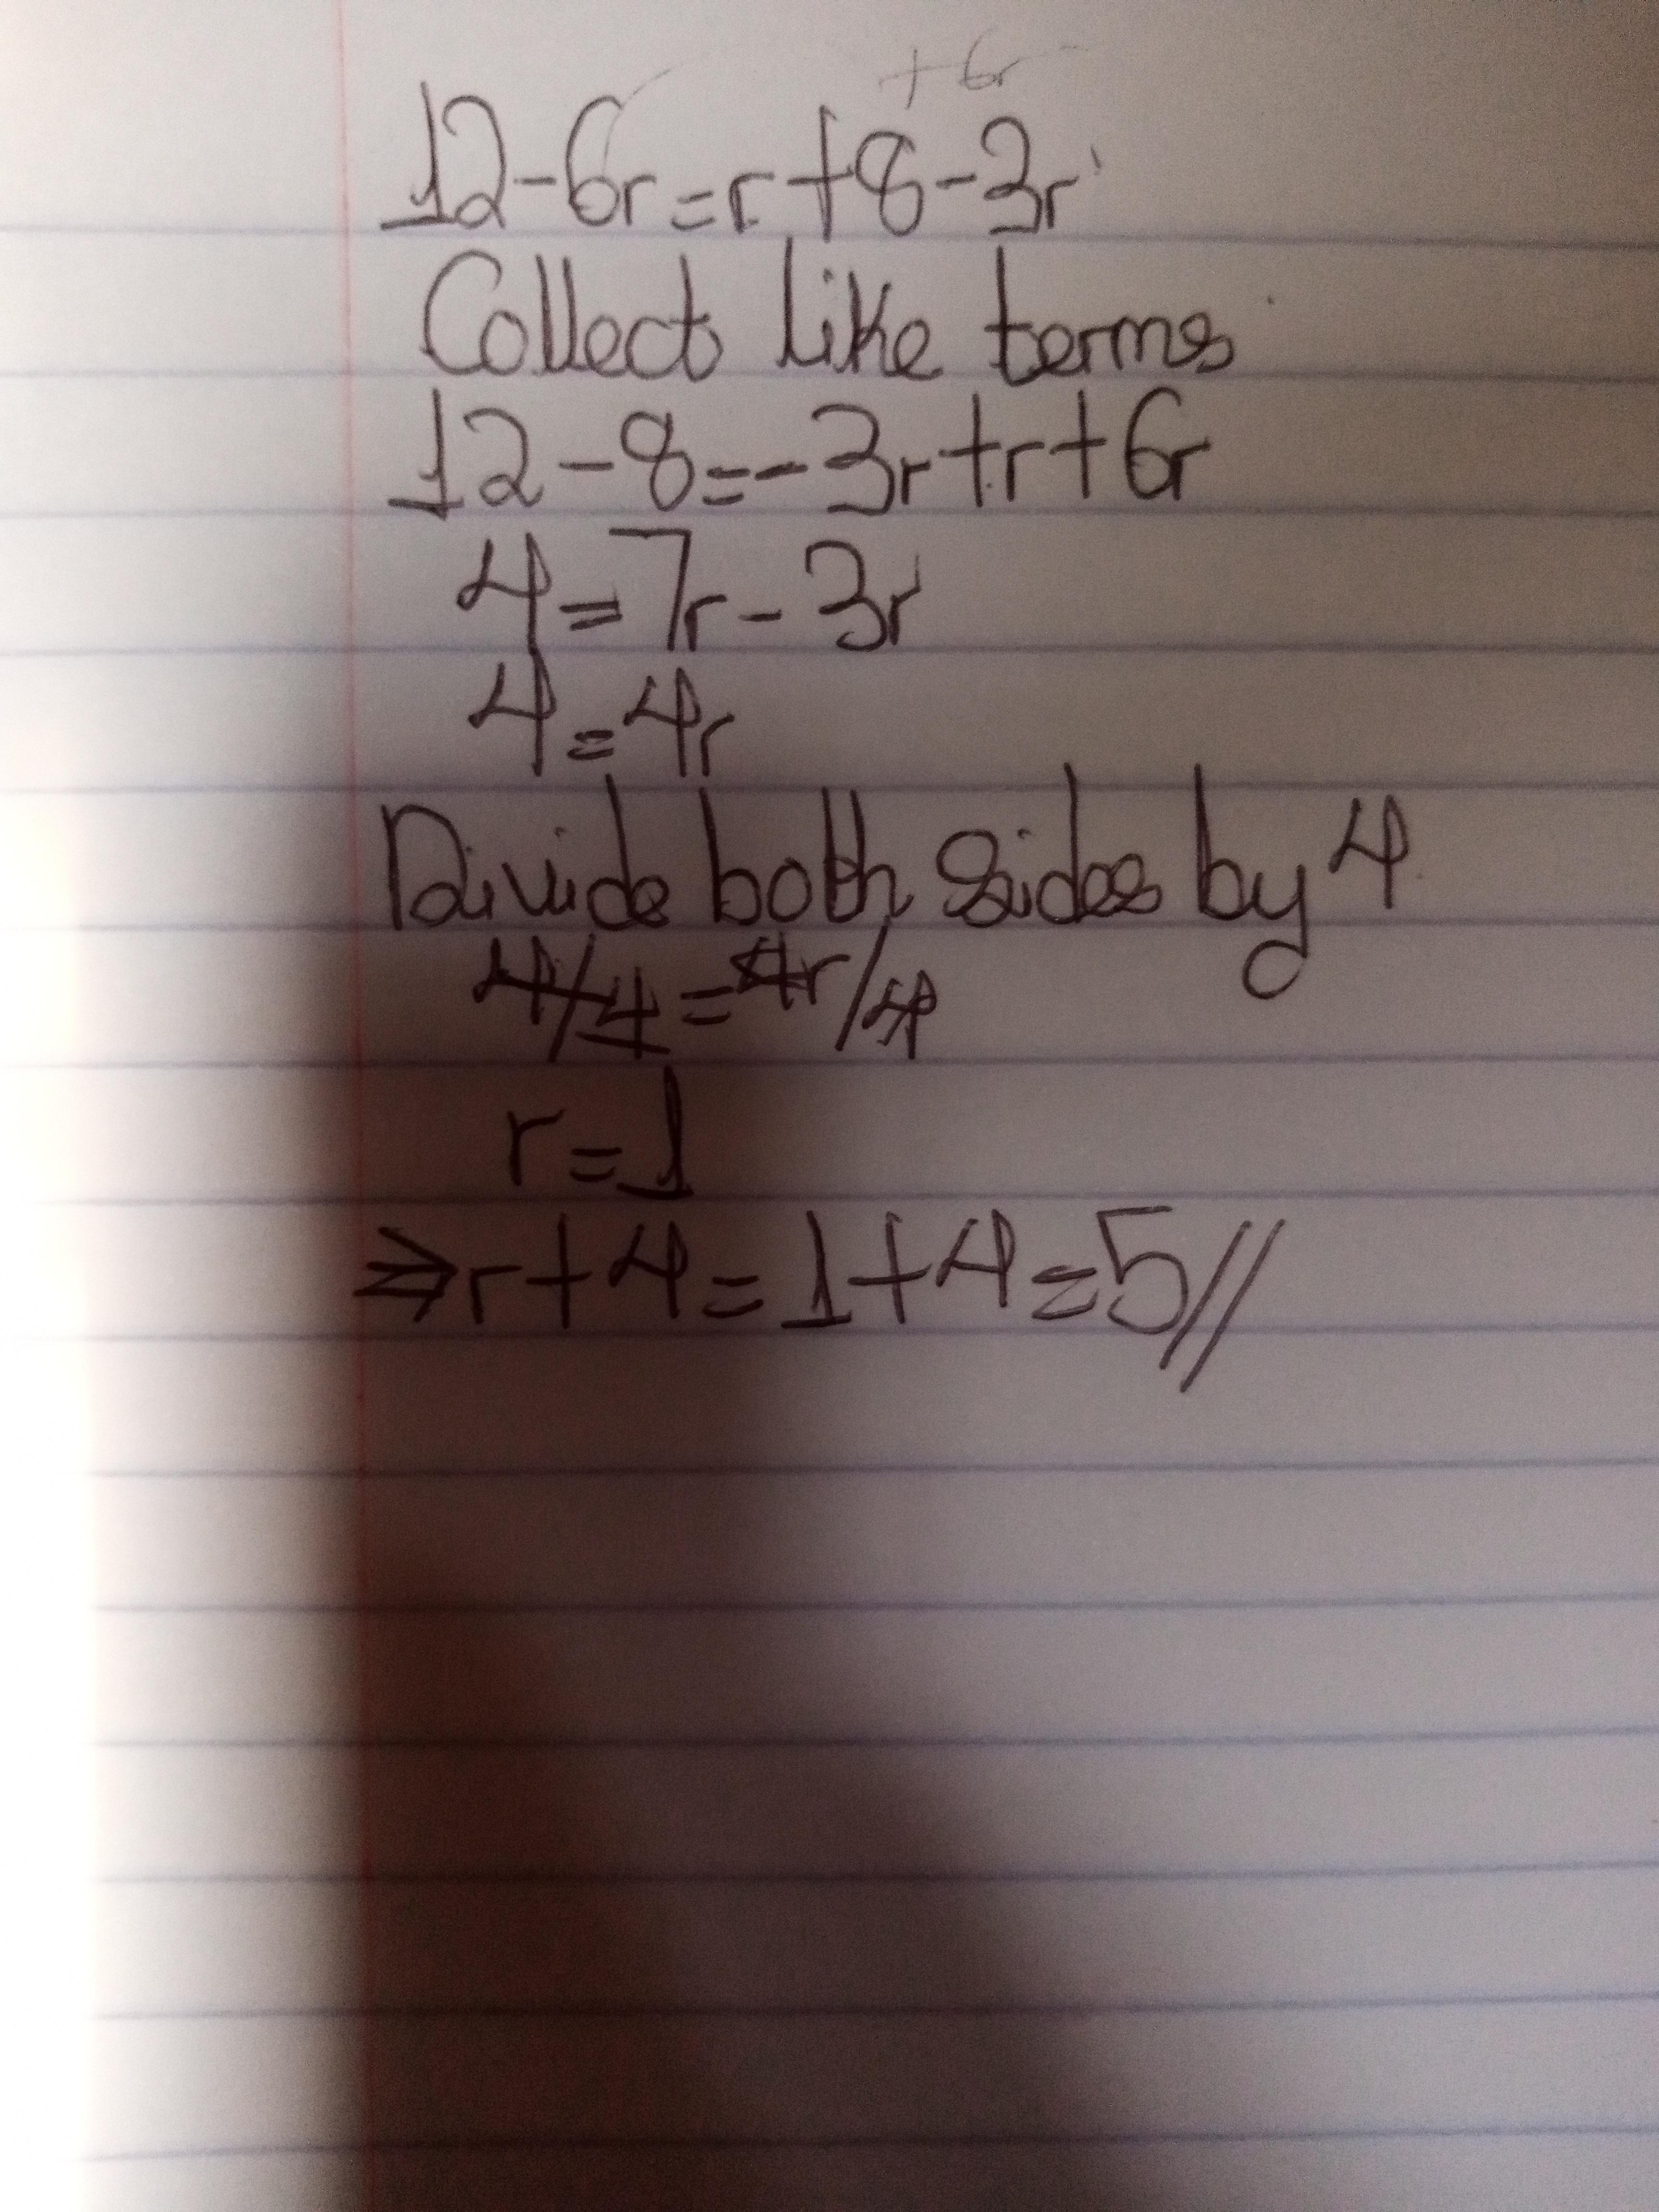 + 6r
12-6r=r+8-3r
Collect like terms
12-8=-3r+r+6r
4=7r-3r
4=4r
Divide both sides by 4
4/4=4r/4
r=1
⇒r+4=1+4=5//